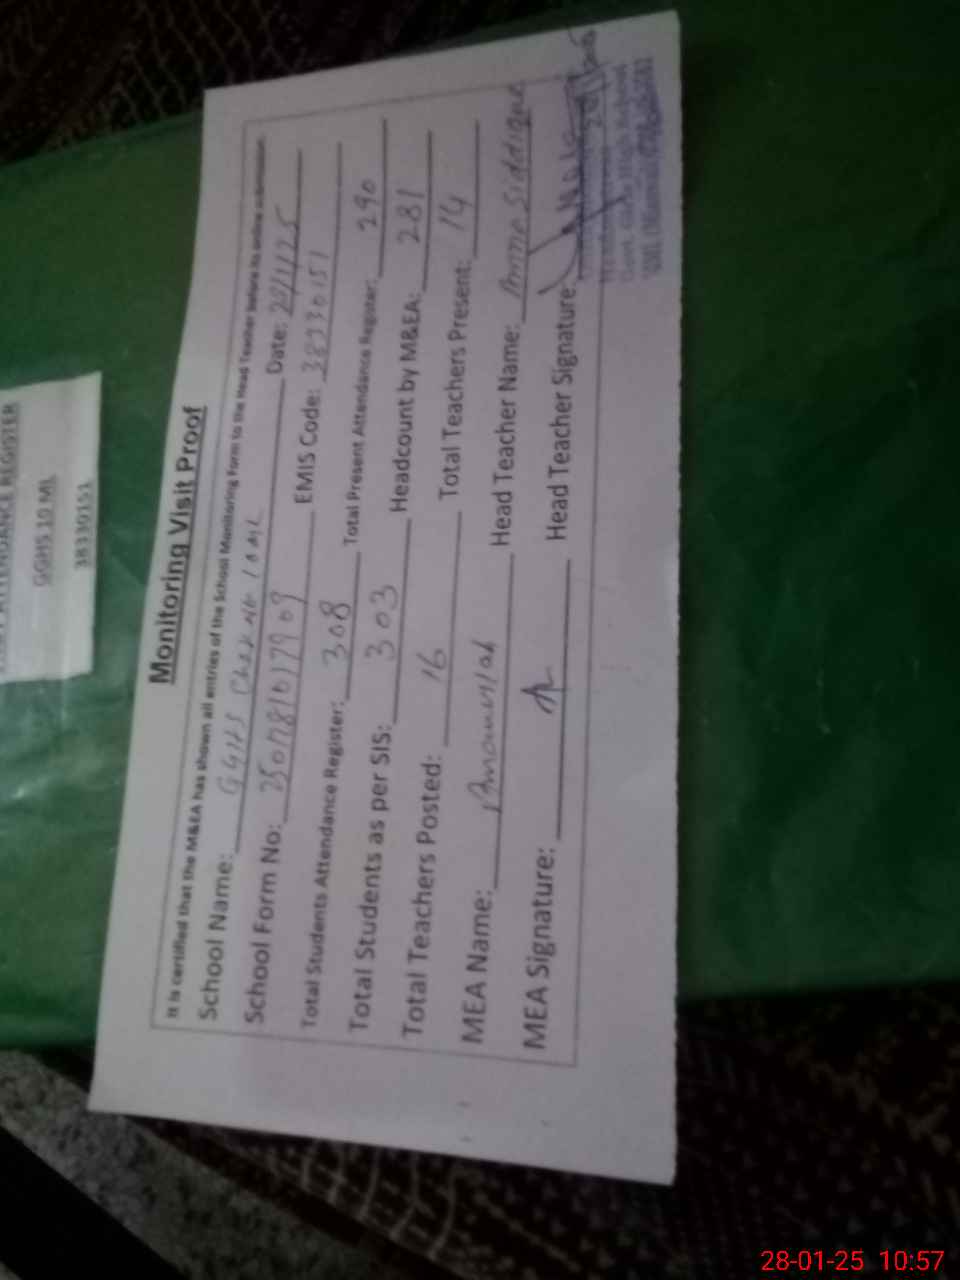 ATTENDANCE REGISTER
GGHS 10 ML
38330151
Monitoring Visit Proof
It is certified that the M&EA has shown all entries of the School Monitoring Form to the Head Teacher before its online submission.
School Name: GGHS Chak No 10 ML Date: 28/1/25
School Form No: EMIS Code: 38330151
Total Students Attendance Register: 308 Total Present Attendance Register: 290
Total Students as per SIS: 303 Headcount by M&EA: 281
Total Teachers Posted: 16 Total Teachers Present: 14
MEA Name: Head Teacher Name: Siddique
MEA Signature: Head Teacher Signature:
Govt. Girls High School
28-01-25 10:57